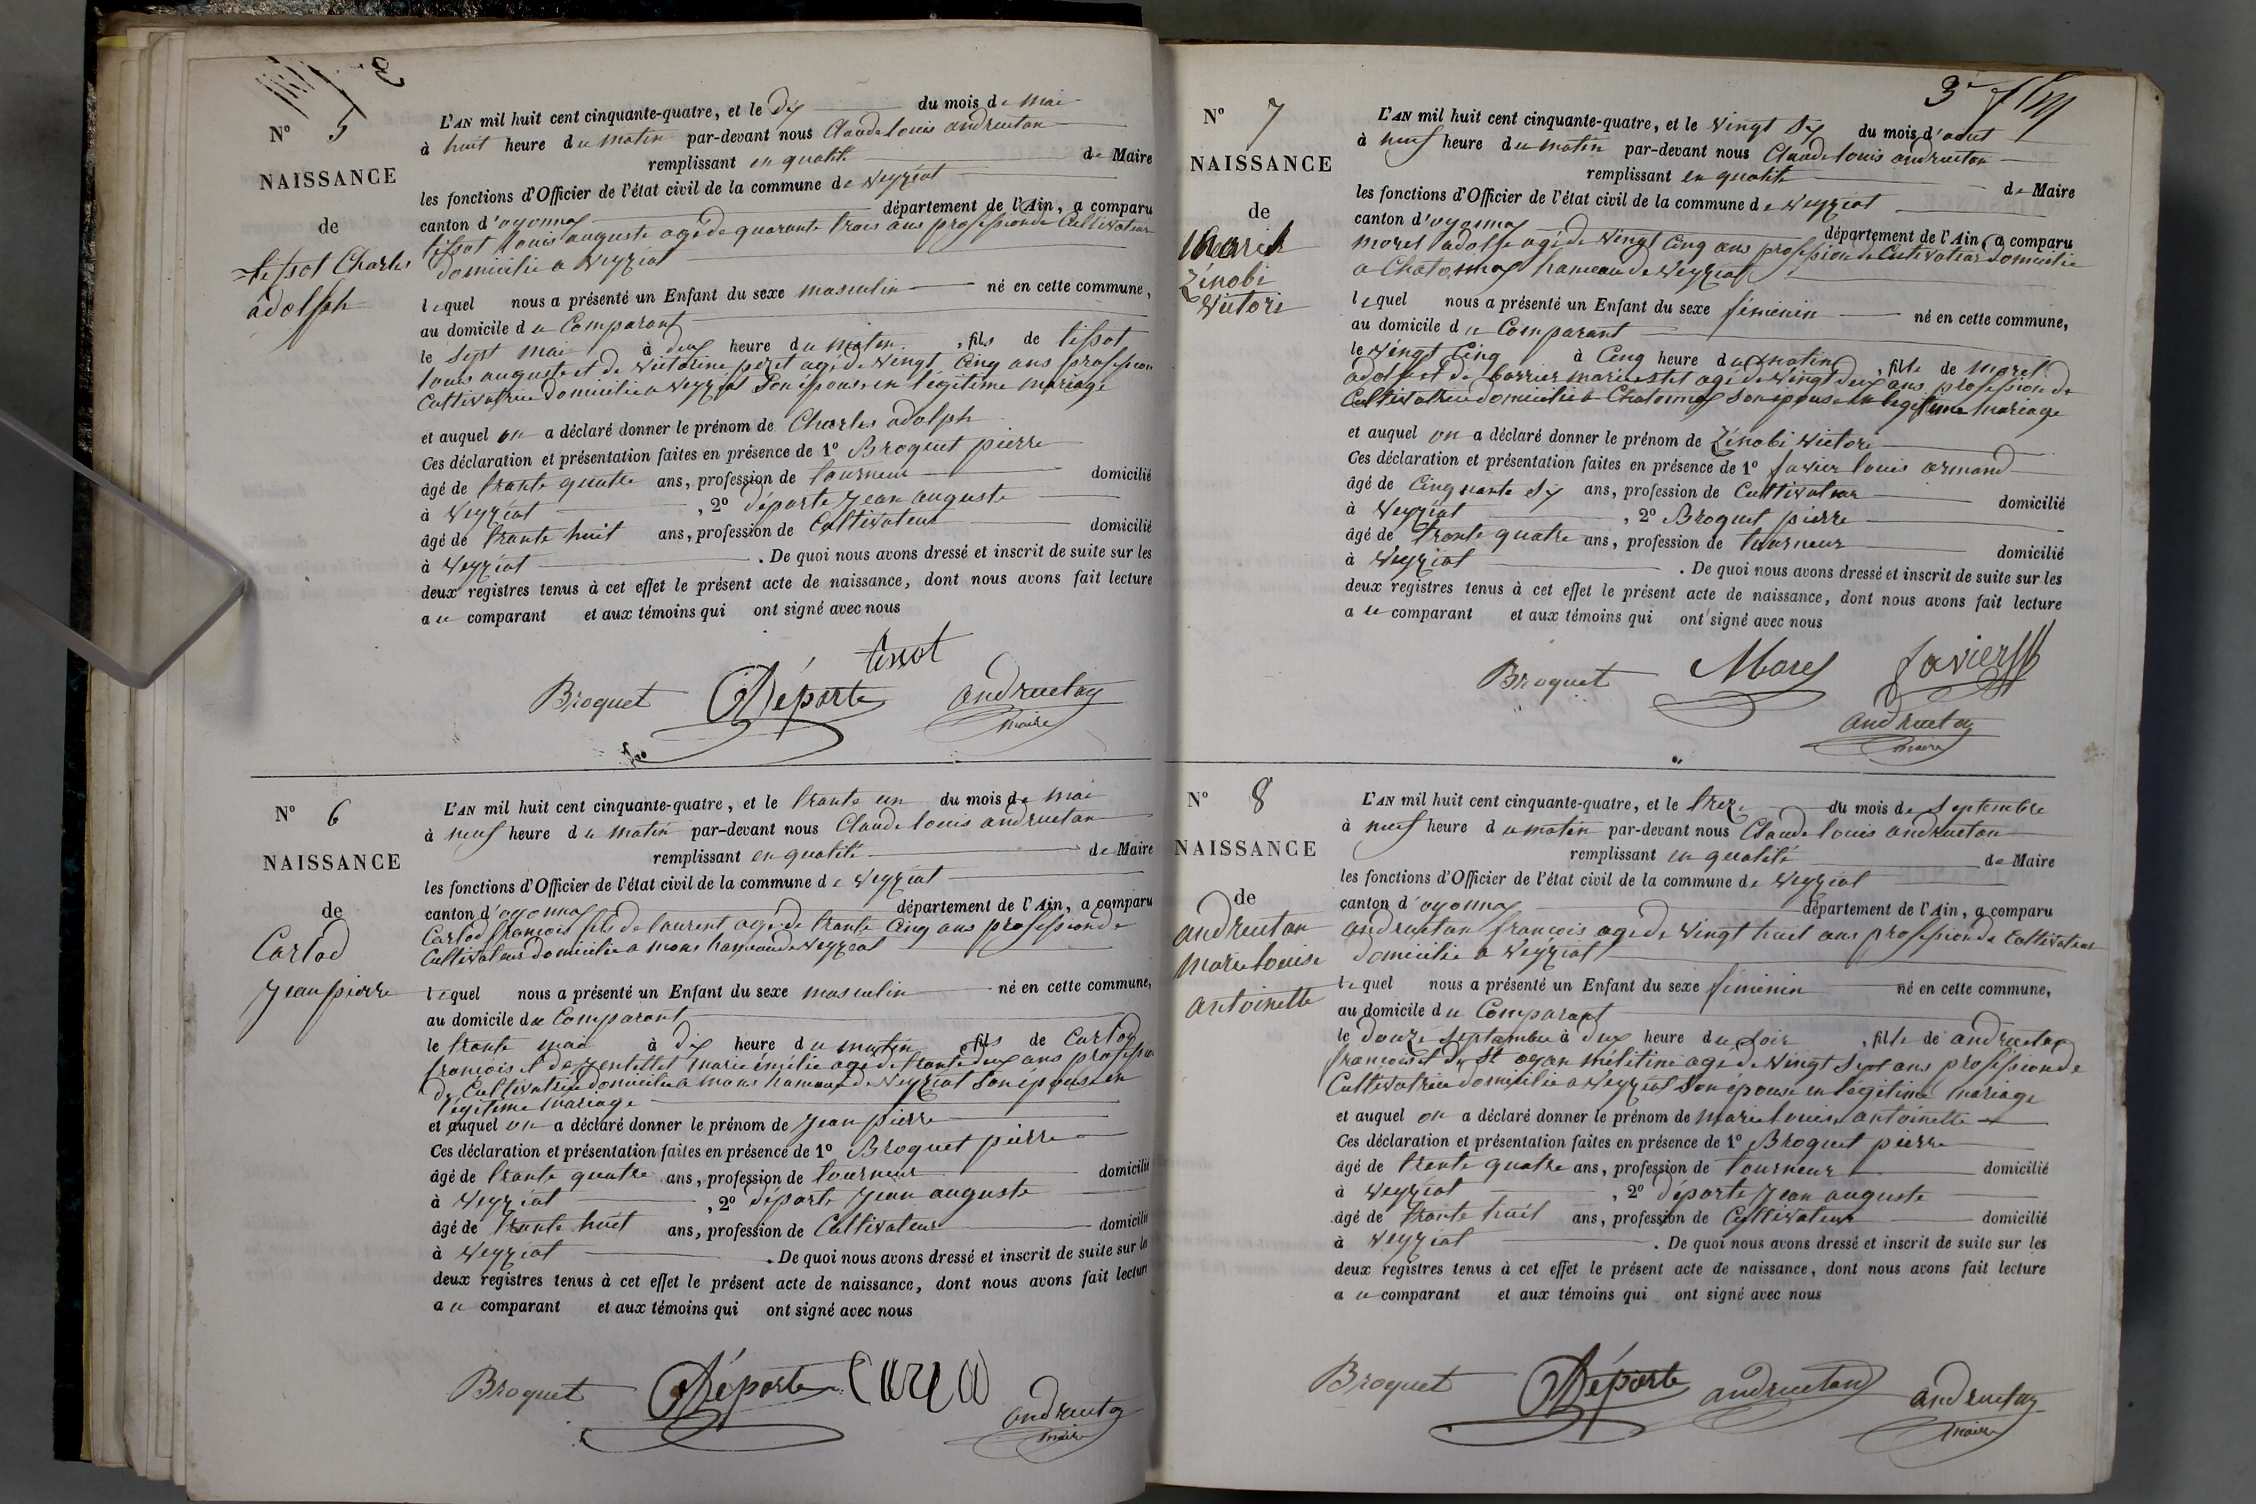 N° 5
NAISSANCE
de
tissot Charles
adolph
L'AN mil huit cent cinquante-quatre, et le dix du mois de mai
à huit heure du matin par-devant nous Claude louis andruetan
remplissant en qualité de Maire
les fonctions d'Officier de l'état civil de la commune de veyziat
canton d'oyonnax département de l'Ain, a comparu
tissot louis auguste agé de quarante trois ans profession de Cultivateur
domicilié a veyziat
lequel nous a présenté un Enfant du sexe masculin né en cette commune,
au domicile du Comparant
le sept mai à deux heure du matin, fils de tissot
louis auguste et de victorine peret agé de vingt Cinq ans profession
Cultivatrice domicilié a veyziat son épouse en légitime mariage
et auquel on a déclaré donner le prénom de Charles adolph
Ces déclaration et présentation faites en présence de 1° Broquet pierre
âgé de trante quatre ans, profession de tourneur domicilié
à veyziat, 2° déporte jean auguste
âgé de trante huit ans, profession de Cultivateur domicilié
à veyziat. De quoi nous avons dressé et inscrit de suite sur les
deux registres tenus à cet effet le présent acte de naissance, dont nous avons fait lecture
au comparant et aux témoins qui ont signé avec nous
tissot
Broquet Déporte andruetan
maire
N° 6
NAISSANCE
de
Carlod
jean pierre
L'AN mil huit cent cinquante-quatre, et le trante un du mois de mai
à neuf heure du matin par-devant nous Claude louis andruetan
remplissant en qualité de Maire
les fonctions d'Officier de l'état civil de la commune de veyziat
canton d'oyonnax département de l'Ain, a comparu
Carlod françois fils de laurent agé de trante Cinq ans profession de
Cultivateur domicilié a mons hameau de veyziat
lequel nous a présenté un Enfant du sexe masculin né en cette commune,
au domicile du Comparant
le trante mai à dix heure du matin, fils de Carlod
françois et de marie émélie agé de trante deux ans profession
de Cultivatrice domicilié a mons hameau de veyziat son épouse en
légitime mariage
et auquel on a déclaré donner le prénom de jean pierre
Ces déclaration et présentation faites en présence de 1° Broquet pierre
âgé de trante quatre ans, profession de tourneur domicilié
à veyziat, 2° déporte jean auguste
âgé de trante huit ans, profession de Cultivateur domicilié
à veyziat. De quoi nous avons dressé et inscrit de suite sur les
deux registres tenus à cet effet le présent acte de naissance, dont nous avons fait lecture
au comparant et aux témoins qui ont signé avec nous
Broquet Déporte
andruetan
maire
3e
N° 7
NAISSANCE
de
Morel
Zénobi
victore
L'AN mil huit cent cinquante-quatre, et le vingt six du mois d'aout
à neuf heure du matin par-devant nous Claude louis andruetan
remplissant en qualité de Maire
les fonctions d'Officier de l'état civil de la commune de veyziat
canton d'oyonnax département de l'Ain, a comparu
morel adolfe agé de vingt Cinq ans profession de Cultivateur domicilié
a Chatonnax hameau de veyziat
lequel nous a présenté un Enfant du sexe féminin né en cette commune,
au domicile du Comparant
le vingt Cinq à Cinq heure du matin, fille de morel
adolfe et de marie agé de vingt deux ans profession de
Cultivatrice domicilié a Chatonnax son épouse en legitime mariage
et auquel on a déclaré donner le prénom de Zénobi victore
Ces déclaration et présentation faites en présence de 1° favier louis armand
âgé de Cinquante six ans, profession de Cultivateur domicilié
à veyziat, 2° Broquet pierre
âgé de trante quatre ans, profession de tourneur domicilié
à veyziat. De quoi nous avons dressé et inscrit de suite sur les
deux registres tenus à cet effet le présent acte de naissance, dont nous avons fait lecture
au comparant et aux témoins qui ont signé avec nous
Broquet Morel favier
andruetan
maire
N° 8
NAISSANCE
de
andruetan
marie louise
antoinette
L'AN mil huit cent cinquante-quatre, et le treze du mois de septembre
à neuf heure du matin par-devant nous Claude louis andruetan
remplissant en qualité de Maire
les fonctions d'Officier de l'état civil de la commune de veyziat
canton d'oyonnax département de l'Ain, a comparu
andruetan françois agé de vingt huit ans profession de Cultivateur
domicilié a veyziat
lequel nous a présenté un Enfant du sexe féminin né en cette commune,
au domicile du Comparant
le douze septembre à deux heure du soir, fille de andruetan
françois et de St oyan mélitine agé de vingt sept ans profession de
Cultivatrice domicilié a veyziat son épouse en légitime mariage
et auquel on a déclaré donner le prénom de marie louise antoinette
Ces déclaration et présentation faites en présence de 1° Broquet pierre
âgé de trente quatre ans, profession de tourneur domicilié
à veyziat, 2° déporte jean auguste
âgé de trante huit ans, profession de Cultivateur domicilié
à veyziat. De quoi nous avons dressé et inscrit de suite sur les
deux registres tenus à cet effet le présent acte de naissance, dont nous avons fait lecture
au comparant et aux témoins qui ont signé avec nous
Broquet Déporte andruetan andruetan
maire